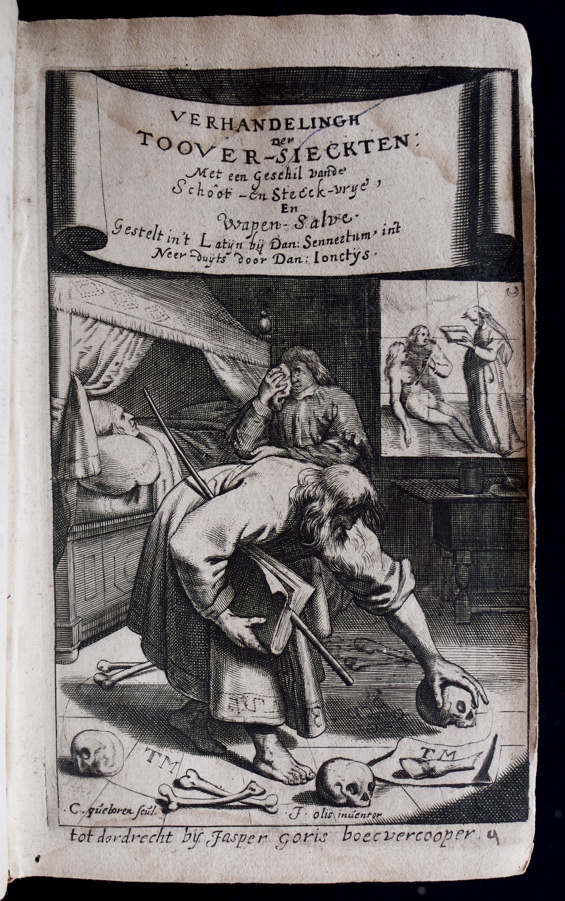 VERHANDELINGH
der
TOOVER-SIECKTEN:
Met een Geschil vande
Schoot-en Steeck-vrye,
En
Wapen-Salve.
Gestelt in't Latijn bij Dan: Sennertum, in't
Neer-duyts door Dan: Ionctijs.
TM
TM
C. queboren scul.
J. olis inventor
tot dordrecht bij Jasper goris boecvercooper.